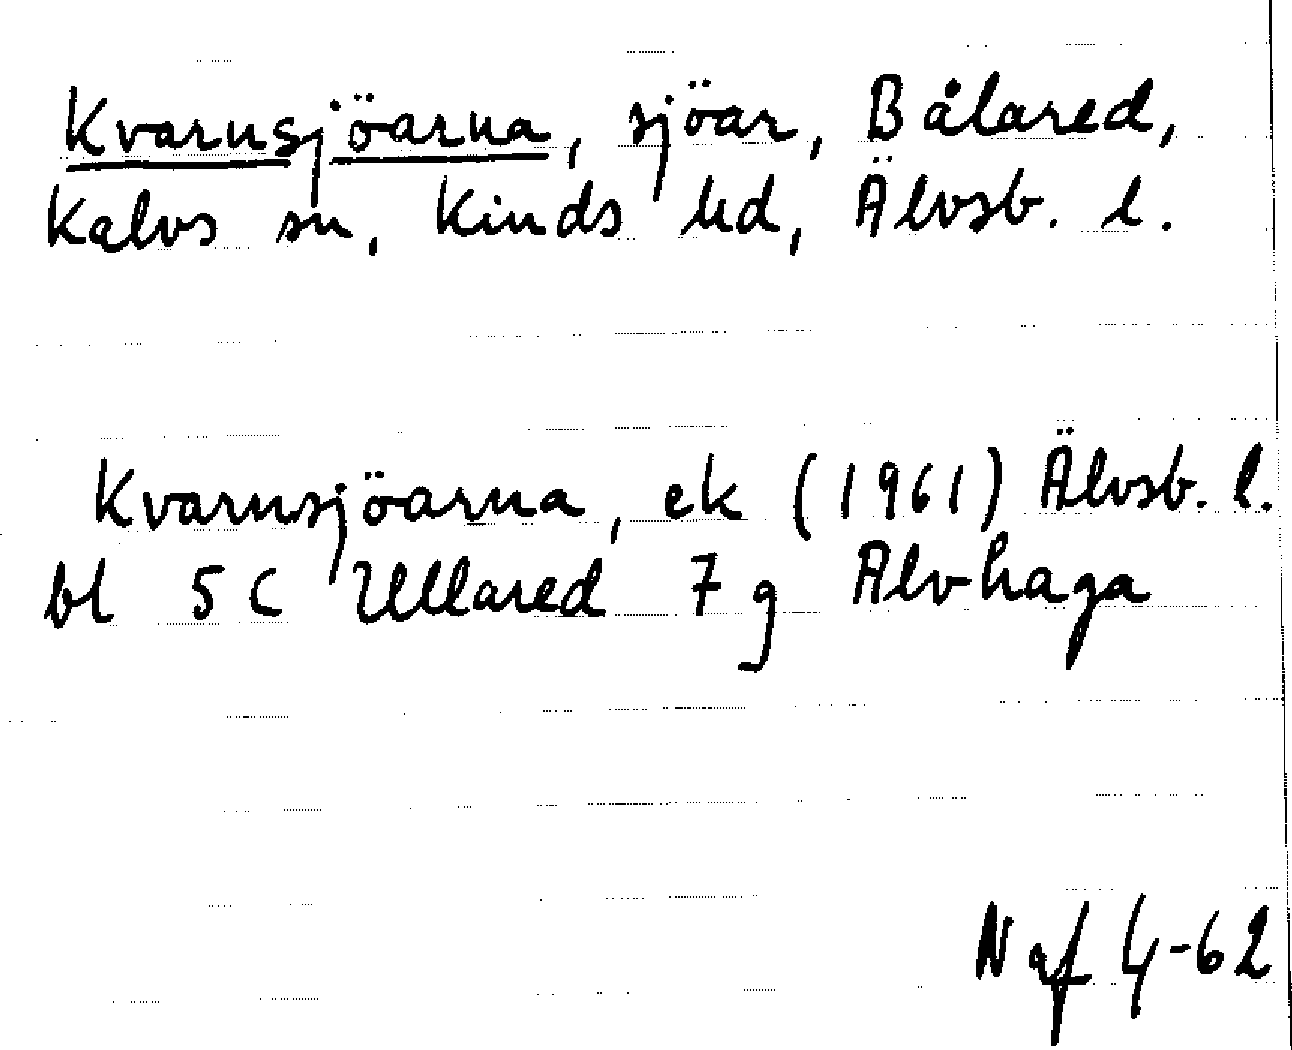 Kvarnsjöarna, sjöar, Bålared,
Kalvs sn, Kinds hd, Älvsb. l.
Kvarnsjöarna, ek (1961) Älvsb. l.
bl 5 C Ullared 7 g Älvhaga
Naf 4-62